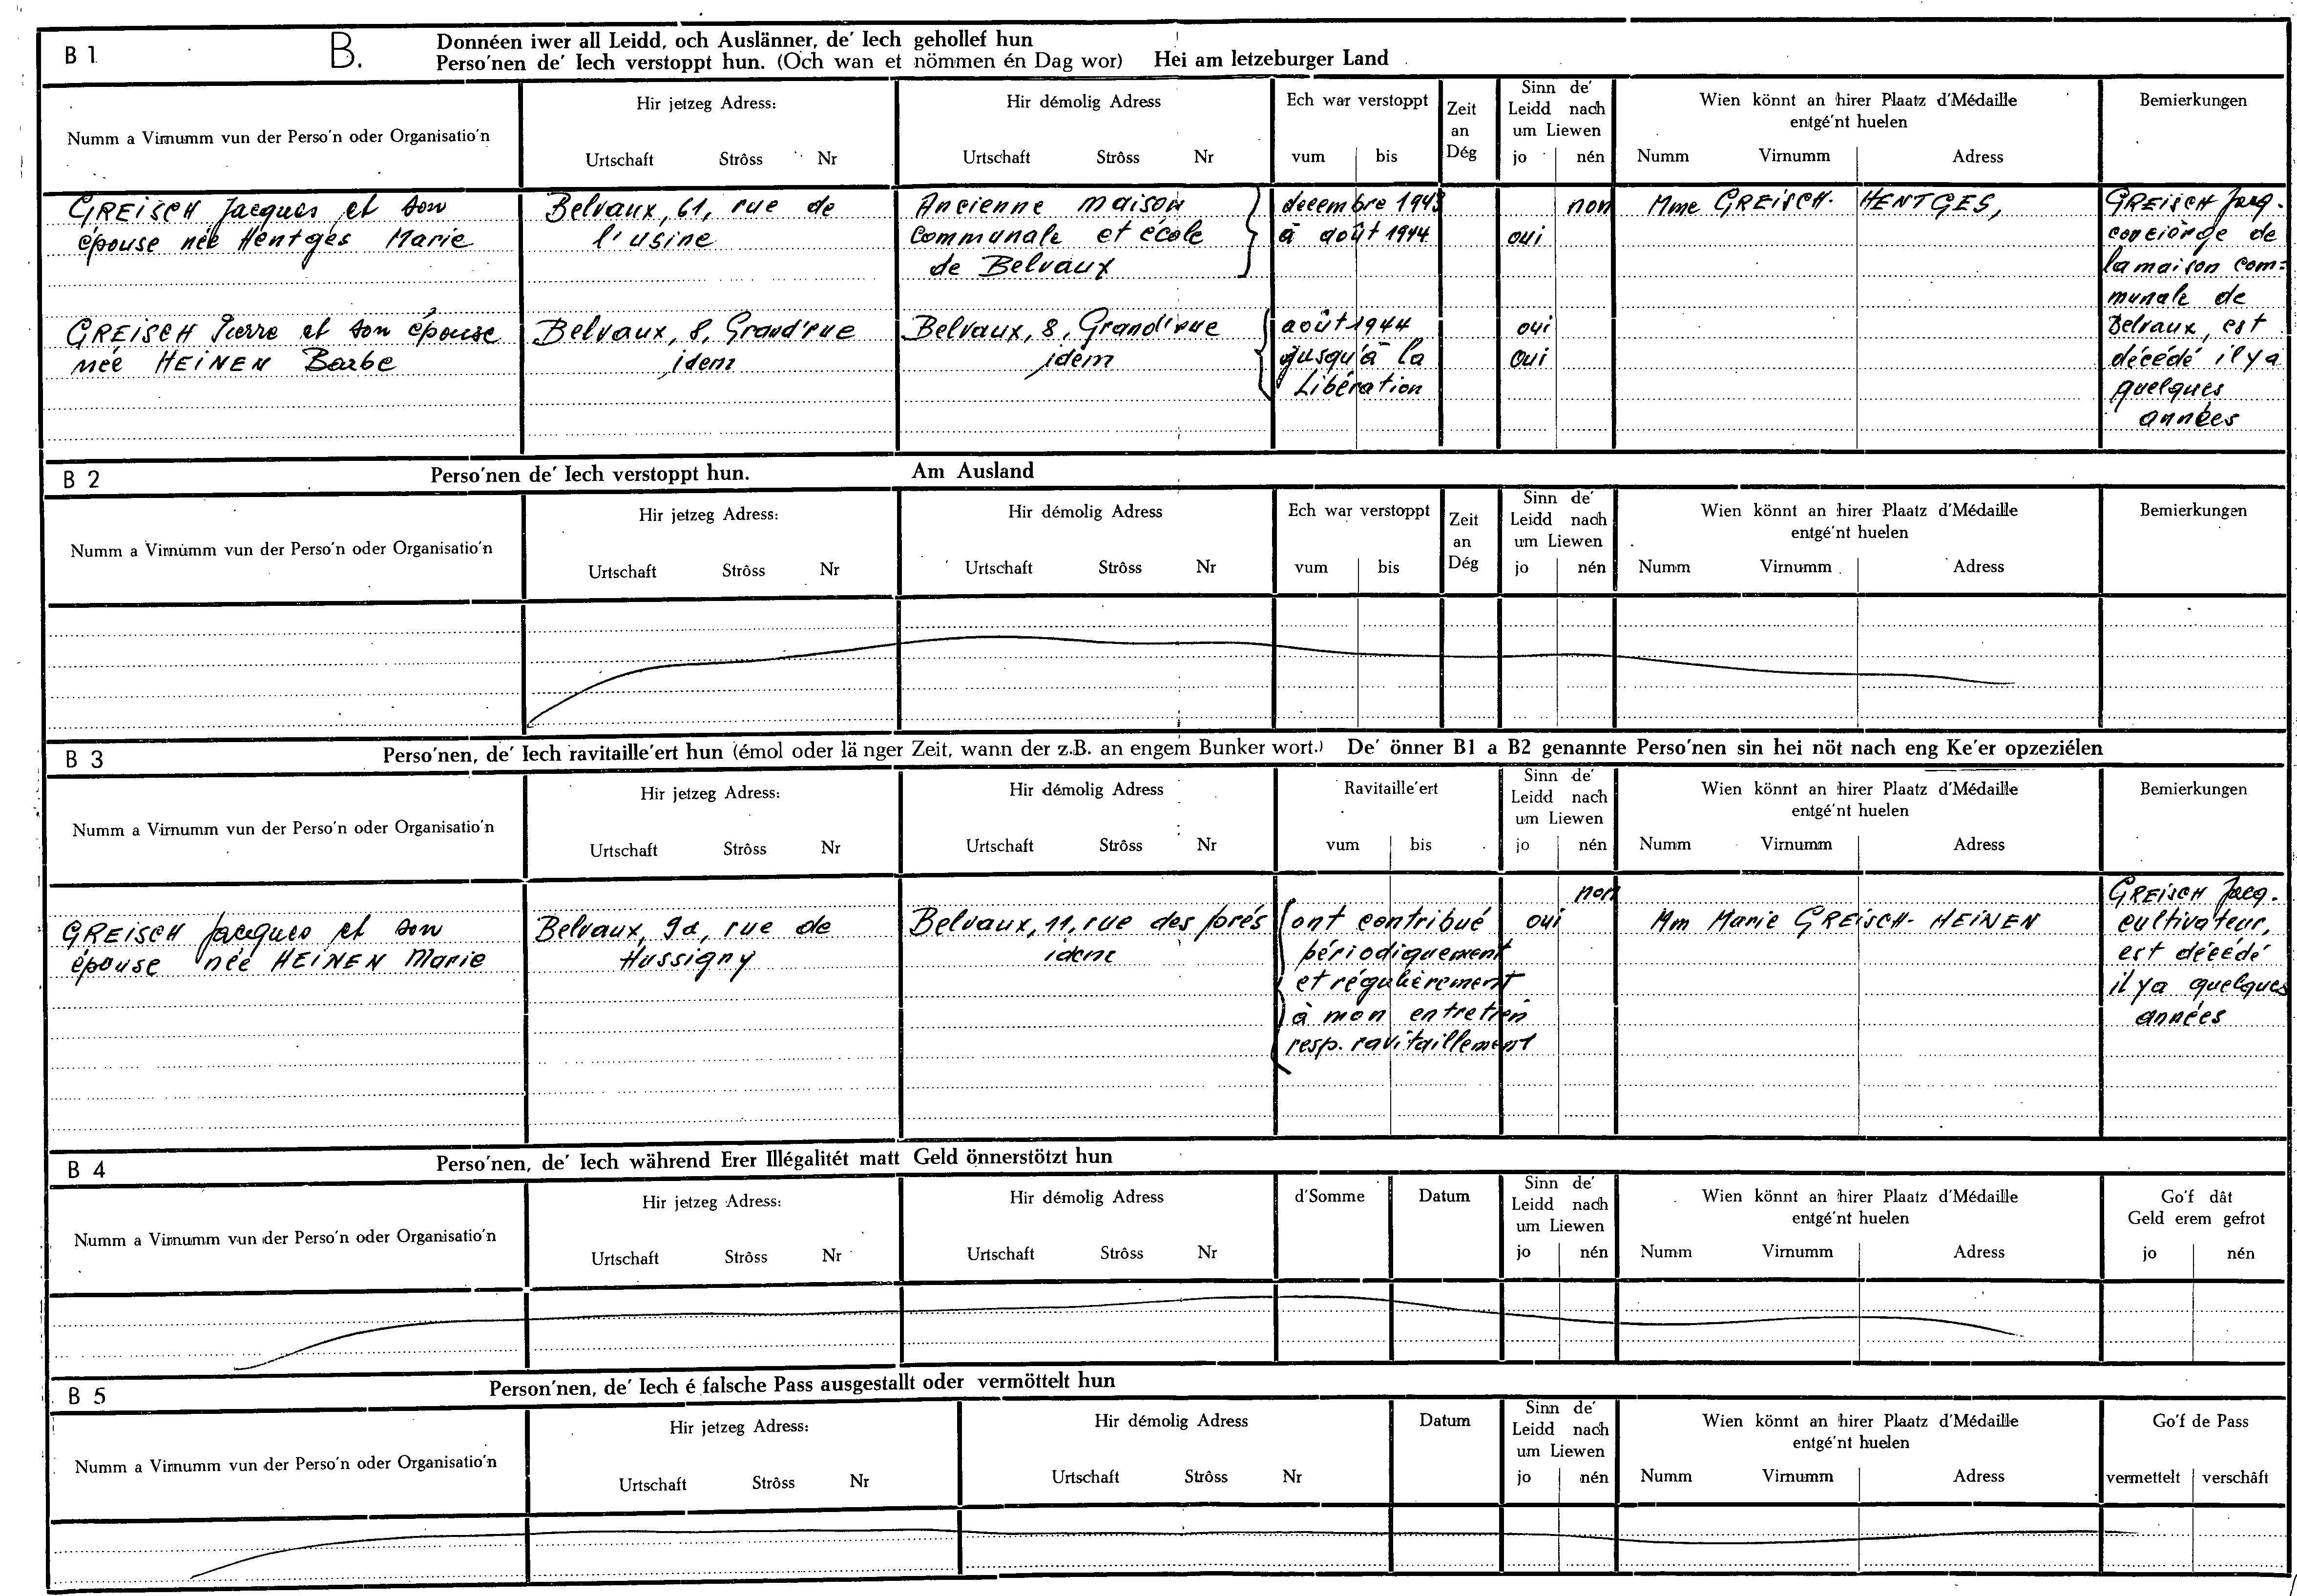 B 1 B. Donnéen iwer all Leidd, och Auslänner, de' Iech gehollef hun
Perso'nen de' Iech verstoppt hun. (Och wan et nömmen én Dag wor) Hei am letzeburger Land
Numm a Virnumm vun der Perso'n oder Organisatio'n
Hir jetzeg Adress:
Urtschaft Strôss Nr
Hir démolig Adress
Urtschaft Strôss Nr
Ech war verstoppt
vum bis
Zeit
an
Dég
Sinn de'
Leidd nach
um Liewen
jo nén
Wien könnt an hirer Plaatz d'Médaille
entgé'nt huelen
Numm Virnumm Adress
Bemierkungen
GREISCH Jacques et son
épouse née Hentges Marie
Belvaux, 61, rue de
l'usine
Ancienne maison
communale et école
de Belvaux
decembre 1943
à août 1944
non
oui
Mme GREISCH- HENTGES,
GREISCH Jacq.
concierge de
la maison com=
munale de
Belvaux, est
décédé il y a
quelques
années
GREISCH Pierre et son épouse
née HEINEN Barbe
Belvaux, 8, Grand'rue
idem
Belvaux, 8, Grand'rue
idem
août 1944
jusqu'à la
Libération
oui
oui
B 2 Perso'nen de' Iech verstoppt hun. Am Ausland
Numm a Virnumm vun der Perso'n oder Organisatio'n
Hir jetzeg Adress:
Urtschaft Strôss Nr
Hir démolig Adress
Urtschaft Strôss Nr
Ech war verstoppt
vum bis
Zeit
an
Dég
Sinn de'
Leidd nach
um Liewen
jo nén
Wien könnt an hirer Plaatz d'Médaille
entgé'nt huelen
Numm Virnumm Adress
Bemierkungen
B 3 Perso'nen, de' Iech ravitaille'ert hun (émol oder länger Zeit, wann der z.B. an engem Bunker wort.) De' önner B1 a B2 genannte Perso'nen sin hei nöt nach eng Ke'er opzeziélen
Numm a Virnumm vun der Perso'n oder Organisatio'n
Hir jetzeg Adress:
Urtschaft Strôss Nr
Hir démolig Adress
Urtschaft Strôss Nr
Ravitaille'ert
vum bis
Sinn de'
Leidd nach
um Liewen
jo nén
Wien könnt an hirer Plaatz d'Médaille
entgé'nt huelen
Numm Virnumm Adress
Bemierkungen
GREISCH Jacques et son
épouse née HEINEN Marie
Belvaux, 9a, rue de
Hussigny
Belvaux, 11, rue des prés
idem
ont contribué
périodiquement
et régulièrement
à mon entretien
resp. ravitaillement
non
oui
Mm Marie GREISCH- HEINEN
GREISCH Jacq.
cultivateur,
est décédé
il y a quelques
années
B 4 Perso'nen, de' Iech während Erer Illégalitét matt Geld önnerstötzt hun
Numm a Virnumm vun der Perso'n oder Organisatio'n
Hir jetzeg Adress:
Urtschaft Strôss Nr
Hir démolig Adress
Urtschaft Strôss Nr
d'Somme
Datum
Sinn de'
Leidd nach
um Liewen
jo nén
Wien könnt an hirer Plaatz d'Médaille
entgé'nt huelen
Numm Virnumm Adress
Go'f dât
Geld erem gefrot
jo nén
B 5 Person'nen, de' Iech é falsche Pass ausgestallt oder vermöttelt hun
Numm a Virnumm vun der Perso'n oder Organisatio'n
Hir jetzeg Adress:
Urtschaft Strôss Nr
Hir démolig Adress
Urtschaft Strôss Nr
Datum
Sinn de'
Leidd nach
um Liewen
jo nén
Wien könnt an hirer Plaatz d'Médaille
entgé'nt huelen
Numm Virnumm Adress
Go'f de Pass
vermettelt verschâft